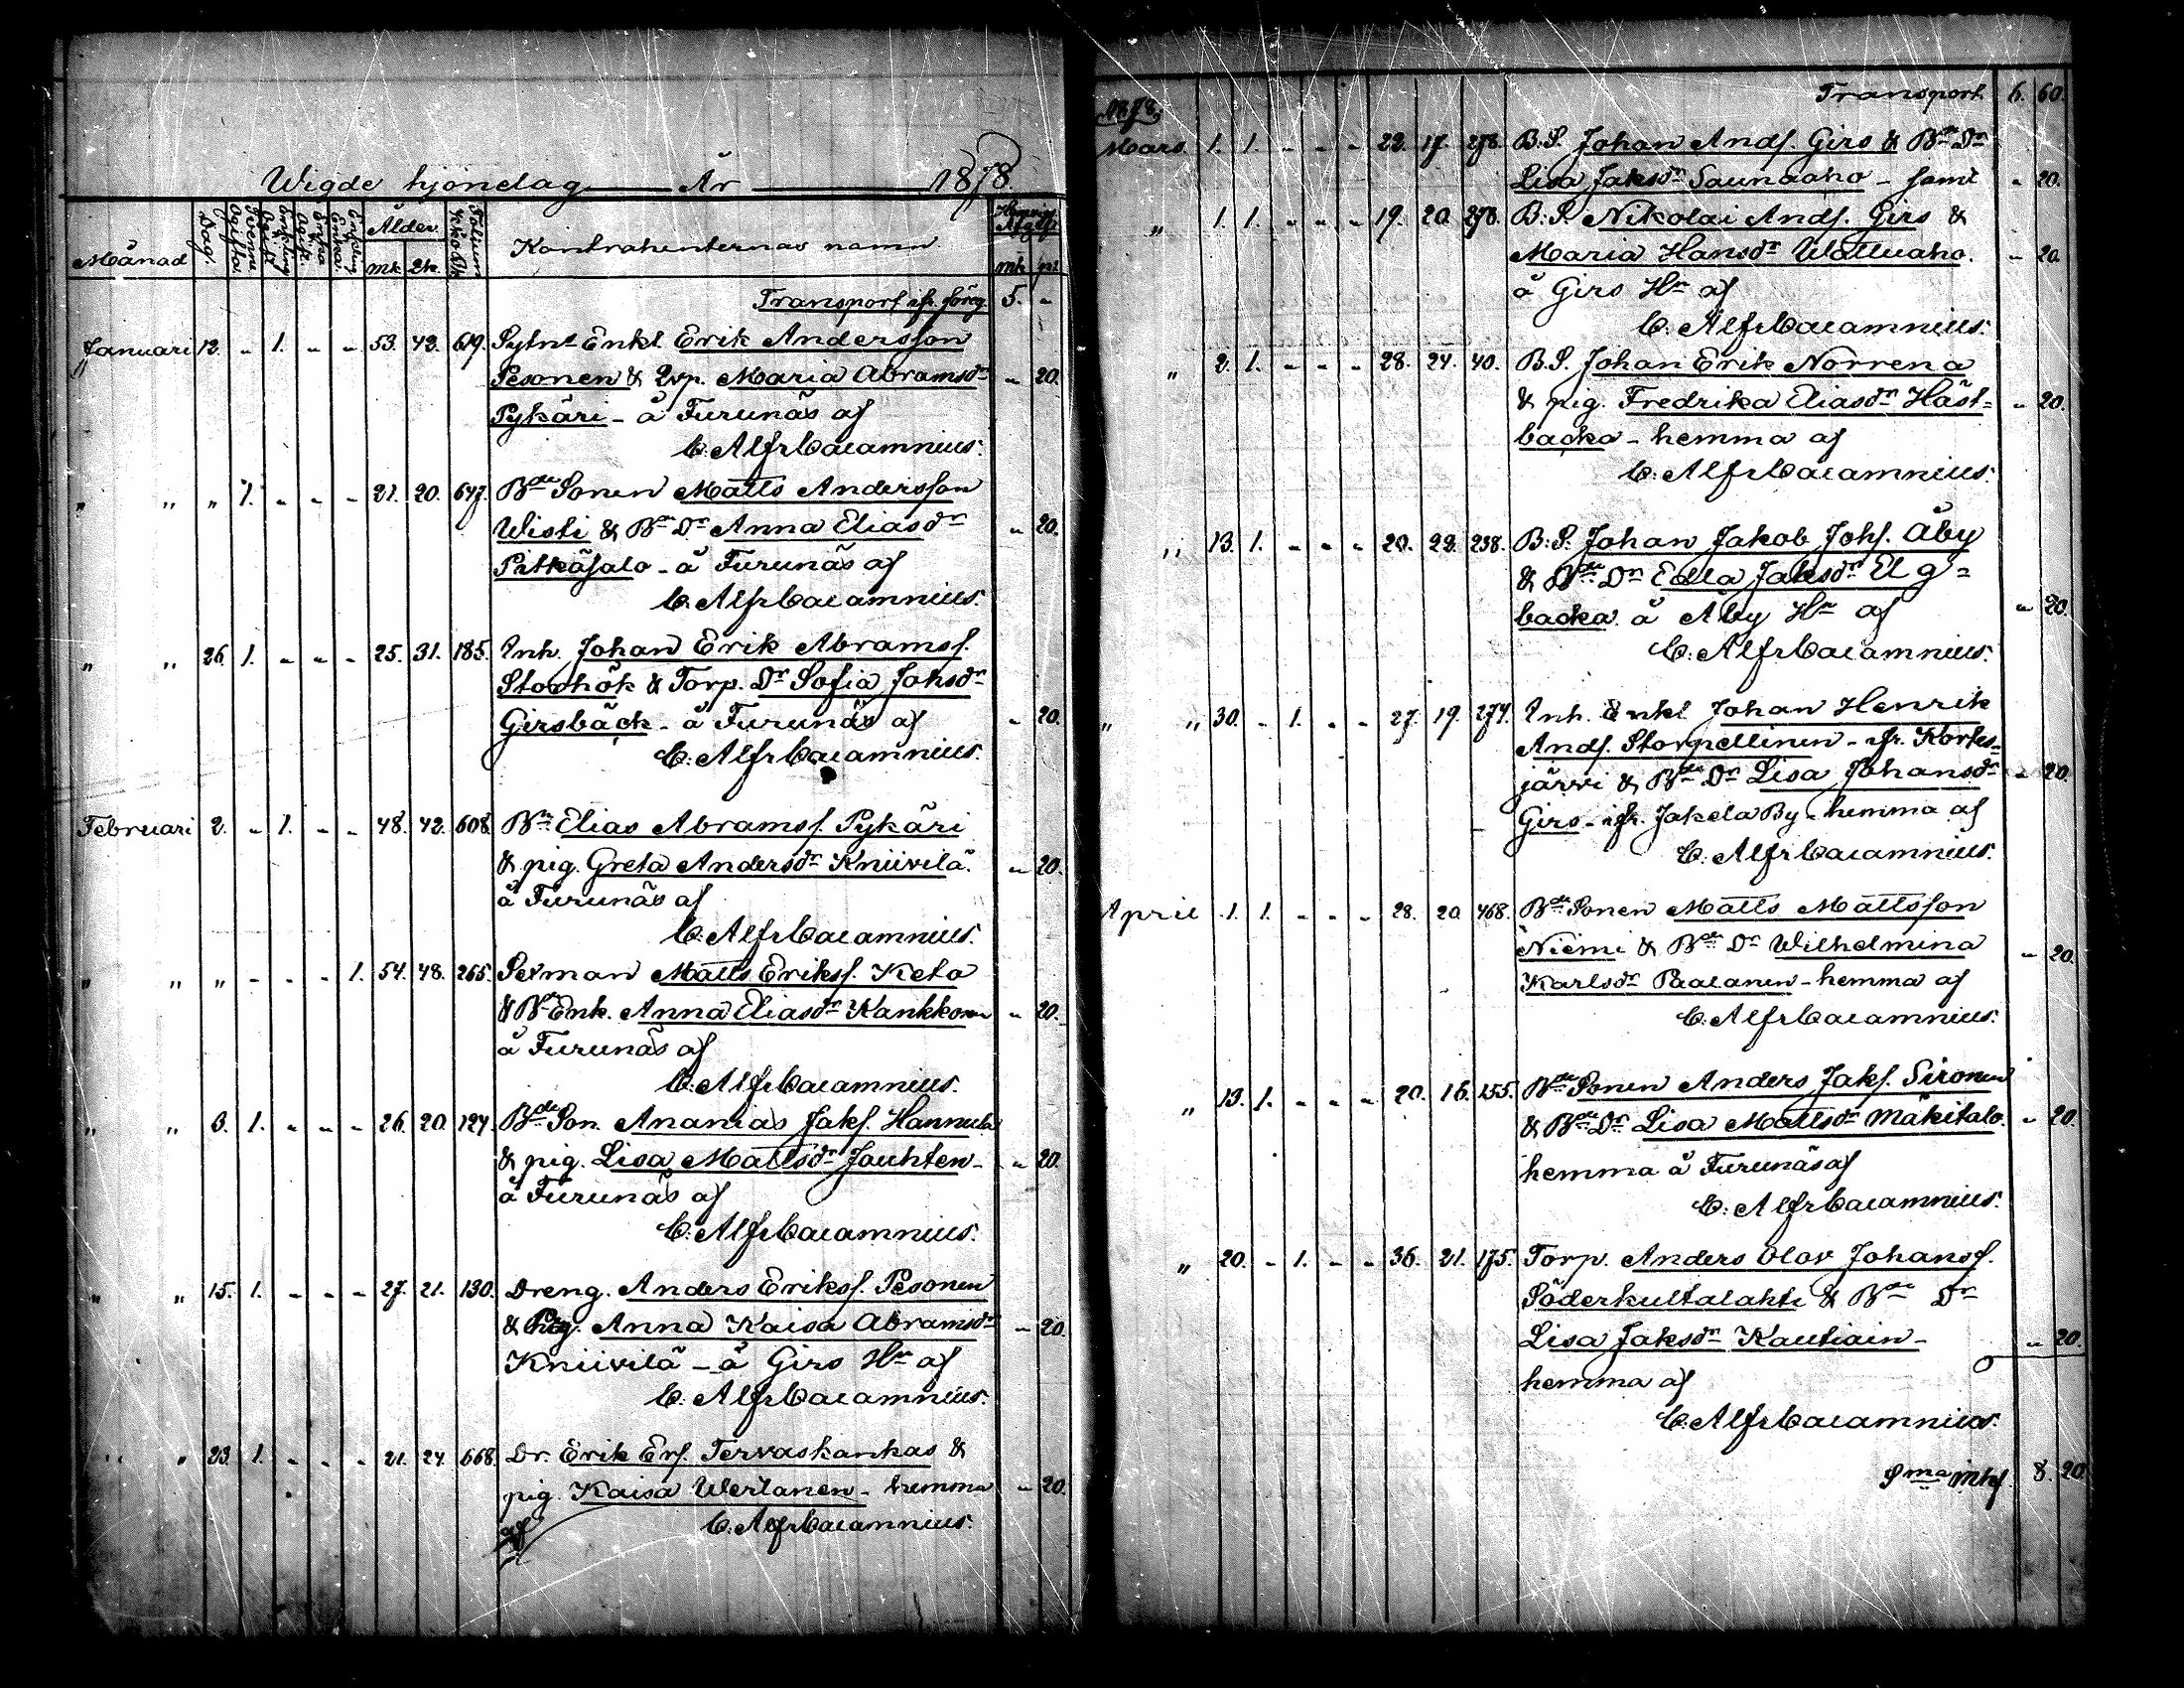 Wigde hjonelag År 1878.
Månad Dag. Ålder Mk. Qk. Kontrahenternas namn mk pi
Transport ifr. föreg. 5. -
Januari 12. - 1. - - 53. 43. 619. Sytn. Enkl. Erik Andersson
Pesonen & Qvp. Maria Abramsdr - 20.
Pykäri - å Furunäs af
C. Alfr Cajamnius.
" " " 1. - - - 21. 20. 647. Bde Sonen Matts Andersson
Wisti & Bde Dr Anna Eliasdr - 20.
Pitkäsalo - å Furunäs af
C. Alfr Cajamnius.
" " 26. 1. - - - 25. 31. 185. Inh. Johan Erik Abramss.
Storhök & Torp. Dr Sofia Johsdr
Girsbäck - å Furunäs af - 20.
C. Alfr Cajamnius.
Februari 2. - 1. - - 48. 42. 608. Bde Elias Abramss. Pykäri
& pig. Greta Andersdr Kniivilä. - 20.
å Furunäs af
C. Alfr Cajamnius.
" " " - - - 1. 54. 48. 265. Sexman Matts Erikss. Keto
& Bde Enk. Anna Eliasdr Kankkonen - 20.
å Furunäs af
C. Alfr Cajamnius.
" " 6. 1. - - - 26. 20. 124. Bde Son. Ananias Jaks. Hannula
& pig. Lisa Mattsdr Jauhten - - 20.
å Furunäs af
C. Alfr Cajamnius.
" " 15. 1. - - - 27. 21. 130. Dreng. Anders Erikss. Pesonen
& Pig. Anna Kaisa Abramsdr - 20.
Kniivilä - å Girs Hn af
C. Alfr Cajamnius.
" " 23. 1. - - - 21. 24. 668. Dr. Erik Ers. Tervaskankas &
pig. Kaisa Wertanen - hemma - 20.
af C. Alfr Cajamnius.
Transport 6. 60.
1878.
Mars 1. 1. - - - 22. 17. 278. B.S. Johan Ands. Girs & Bde Dr
Lisa Jaksdr Saunaaho - samt - 20.
" 1. 1. - - - 19. 20. 278. B.S. Nikolai Ands. Girs &
Maria Hansdr Wälluaho. - 20.
å Girs Hn af
C. Alfr Cajamnius.
" 2. 1. - - - 28. 24. 40. B.S. Johan Erik Norrena
& pig. Fredrika Eliasdr Häst= - 20.
backa - hemma af
C. Alfr Cajamnius.
" 13. 1. - - - 20. 22. 238. B.S. Johan Jakob Johs. Åby
& Bde Dr Edla Jaksdr Elg=
backa å Åby Hn af - 20.
C. Alfr Cajamnius.
" " 30. - 1. - - 27. 19. 274. Inh. Enkl. Johan Henrik
Ands. Storpellinen - ifr. Kortes=
järvi & Bde Dr Lisa Johansdr - 20.
Girs - ifr. Jakela By - hemma af
C. Alfr Cajamnius.
April 1. 1. - - - 28. 20. 468. Bde Sonen Matts Mattsson
Niemi & Bde Dr Wilhelmina - 20.
Karlsdr Paalanen - hemma af
C. Alfr Cajamnius.
" 13. 1. - - - 20. 16. 155. Bde Sonen Anders Jaks. Sironen
& Bde Dr Lisa Mattsdr Mäkitalo. - 20.
hemma å Furunäs af
C. Alfr Cajamnius.
" 20. - 1. - - 36. 21. 175. Torp. Anders Olov Johanss.
Söderkultalahti & Bde Dr
Lisa Jaksdr Kautiain - - 20.
hemma af
C. Alfr Cajamnius.
Sma Mkf 8. 20